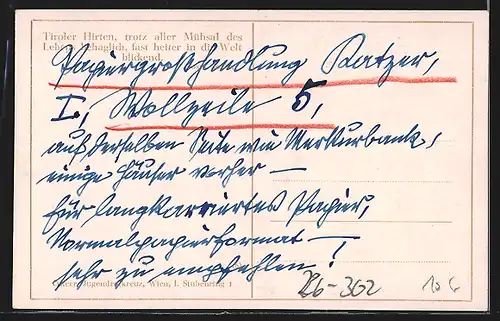 Tiroler Hirten, trotz aller Mühsal des
Lebens behaglich, fast heiter in die Welt
blickend.
Papiergroßhandlung Katzer,
I., Wollzeile 5,
auf derselben Seite wie Merkurbank,
einige Häuser vorher —
für langkarriertes Papier,
Normalpapierformat —
sehr zu empfehlen!
Jugendrotkreuz, Wien, I. Stubenring 1
26-302
10 €